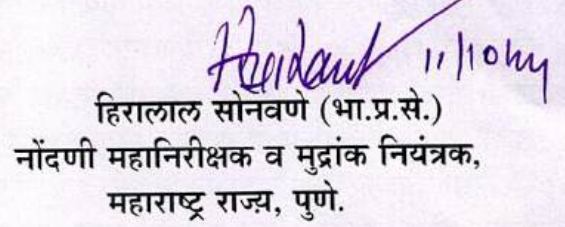 हिरालाल सोनवणे (भा.प्र.से.)
नोंदणी महानिरीक्षक व मुद्रांक नियंत्रक,
महाराष्ट्र राज्य, पुणे.